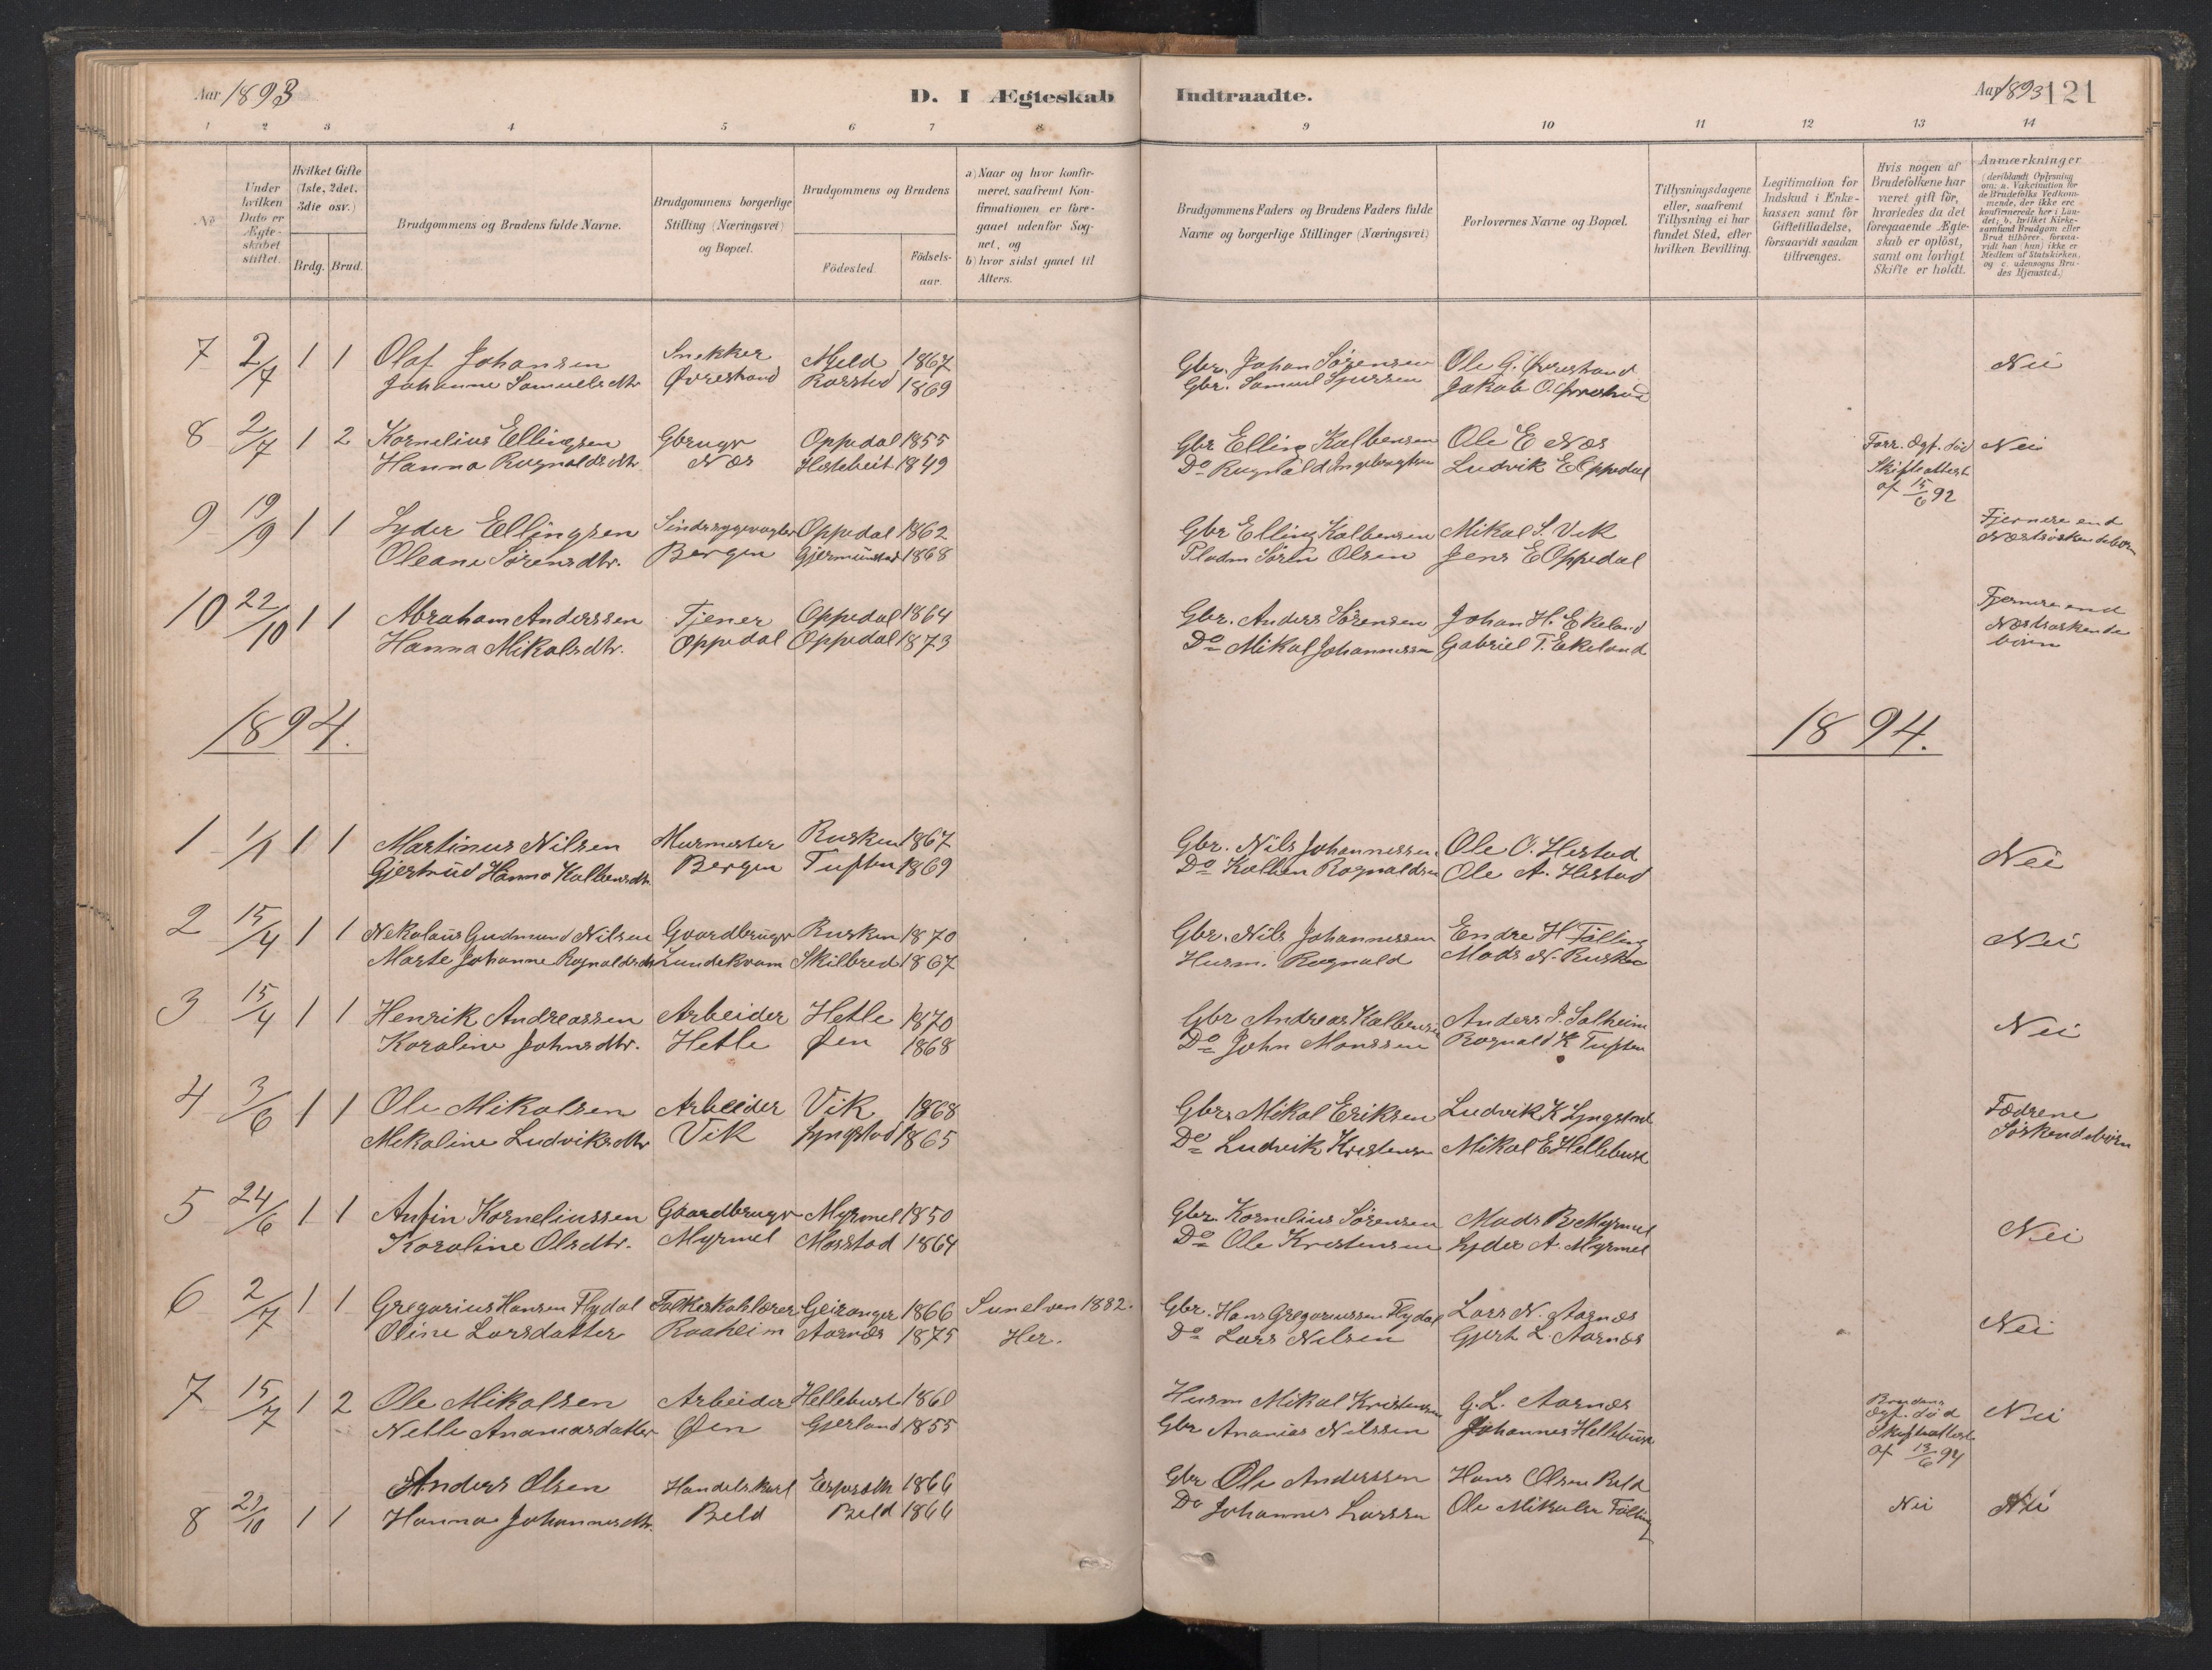 Aar 1893
D. I Ægteskab Indtraadte.
Aar 1893 121
1 2 3 4 5 6 7 8 9 10 11 12 13 14
No.
Under hvilken Dato er Ægteskabet stiftet.
Hvilket Gifte (1ste, 2det, 3die osv.)
Brdg. Brud.
Brudgommens og Brudens fulde Navne.
Brudgommens borgerlige Stilling (Næringsvei) og Bopæl.
Brudgommens og Brudens
Födested
Födselsaar.
a) Naar og hvor konfirmeret, saafremt Konfirmationen er foregaaet udenfor Sognet, og
b) hvor sidst gaaet til Alters.
Brudgommens Faders og Brudens Faders fulde Navne og borgerlige Stillinger (Næringsvei)
Forlovernes Navne og Bopæl.
Tillysningsdagene eller, saafremt Tillysning ei har fundet Sted, efter hvilken Bevilling.
Legitimation for Indskud i Enkekassen samt for Giftetilladelse, forsaavidt saadan tiltrænges.
Hvis nogen af Brudefolkene har været gift för, hvorledes da det foregaaende Ægteskab er oplöst, samt om lovligt Skifte er holdt.
Anmærkninger (deriblandt Oplysning om: a. Vakcination for de Brudefolks Vedkommende, der ikke ere konfirmerede her i Landet; b. hvilket Kirkesamfund Brudgom eller Brud tilhörer, forsaavidt han (hun) ikke er Medlem af Statskirken, og c. udensogns Brudes Hjemsted.)
7 2/7 1 1 Olaf Johansen Snekker Meld 1867 Gbr. Johan Sørensen Ole G. Øvrestrand Nei
Johanne Samuelsdtr Øvrestrand 1869 Gbr. Samuel Jakob O. Øvrestrand
8 2/7 1 2 Kornelius Ellingsen Gbruger Oppedal 1855 Gbr Elling Kolbensen Ole E Næs Forr. Ægt. død Nei
Hanna Rognaldsdtr. Næs Hestebeit 1849 Do Rognald Ingebrigtsen Ludvik E Oppedal Skifteattest
af 15/6 92
9 19/9 1 1 Lyder Ellingsen Oppedal 1862 Gbr Elling Kolbensen Mikal S. Vik Fjernere end
Oleane Sørensdtr. Bergen Gjermundstad 1868 Pladsm Søren Olsen Jens E Oppedal Næstsøskendebørn
10 22/10 1 1 Abraham Anderssen Tjener Oppedal 1864 Gbr. Anders Sørensen Johan H. Ekeland Fjernere end
Hanna Mikalsdtr. Oppedal Oppedal 1873 Do Mikal Johannessen Gabriel T. Ekeland Næstsøskende
børn
1894. 1894.
1 1/1 1 1 Martinus Nilsen Murmester Rusken 1867 Gbr. Nils Johannessen Ole O. Hestad Nei
Gjertrud Hanna Kolbensdtr. Bergen Tuften 1869 Do Kolben Rognaldsen Ole A. Hestad
2 15/4 1 1 Nekolaus Gudmund Nilsen Gaardbruger Rusken 1870 Gbr. Nils Johannessen Endre H Følling Nei
Marte Johanne Rognaldsdtr Lundekvam Skilbred 1867 Husm. Rognald Mads N. Rusken
3 15/4 1 1 Henrik Andreassen Arbeider Hetle 1870 Gbr Andreas Kolbensen Anders J. Solheim Nei
Karoline Johnsdtr. Hetle Øen 1868 Do John Monssen Rognald K Tuften
4 3/6 1 1 Ole Mikalsen Arbeider Vik 1868 Gbr. Mikal Eriksen Ludvik K Lyngstad Fædrene
Mekaline Ludviksdtr Vik Lyngstad 1865 Do Ludvik Kristensen Mikal E Hellebust Søskendebørn
5 24/6 1 1 Anfin Korneliussen Gaardbruger Myrmel 1850 Gbr. Kornelius Sørensen Mads R Myrmel Nei
Karoline Olsdtr. Myrmel Masstad 1864 Do Ole Kristensen Lyder A. Myrmel
6 2/7 1 1 Gregorius Hansen Flydal Folkeskolelærer Geiranger 1866 Sunelven 1882. Gbr. Hans Gregoriussen Flydal Lars N. Aarnæs Nei
Oline Larsdatter Raaheim Aarnæs 1875 Her. Do Lars Nilsen Gjert L. Aarnæs
7 15/7 1 2 Ole Mikalsen Arbeider Hellebust 1860 Husm Mikal Kristensen G. L. Aarnæs Brudens Nei
Nelle Ananiasdatter Øen Gjerland 1855 Gbr Ananias Nilssen Johannes Hellebust Ægt. død
Skifteattest
af 13/6 94
8 29/10 1 1 Anders Olsen Handelskarl 1866 Gbr Ole Anderssen Hans Olsen Beld Nei Nei
Hanna Johannesdtr. Beld Beld 1866 Do Johannes Larssen Ole Mikalsen Følling